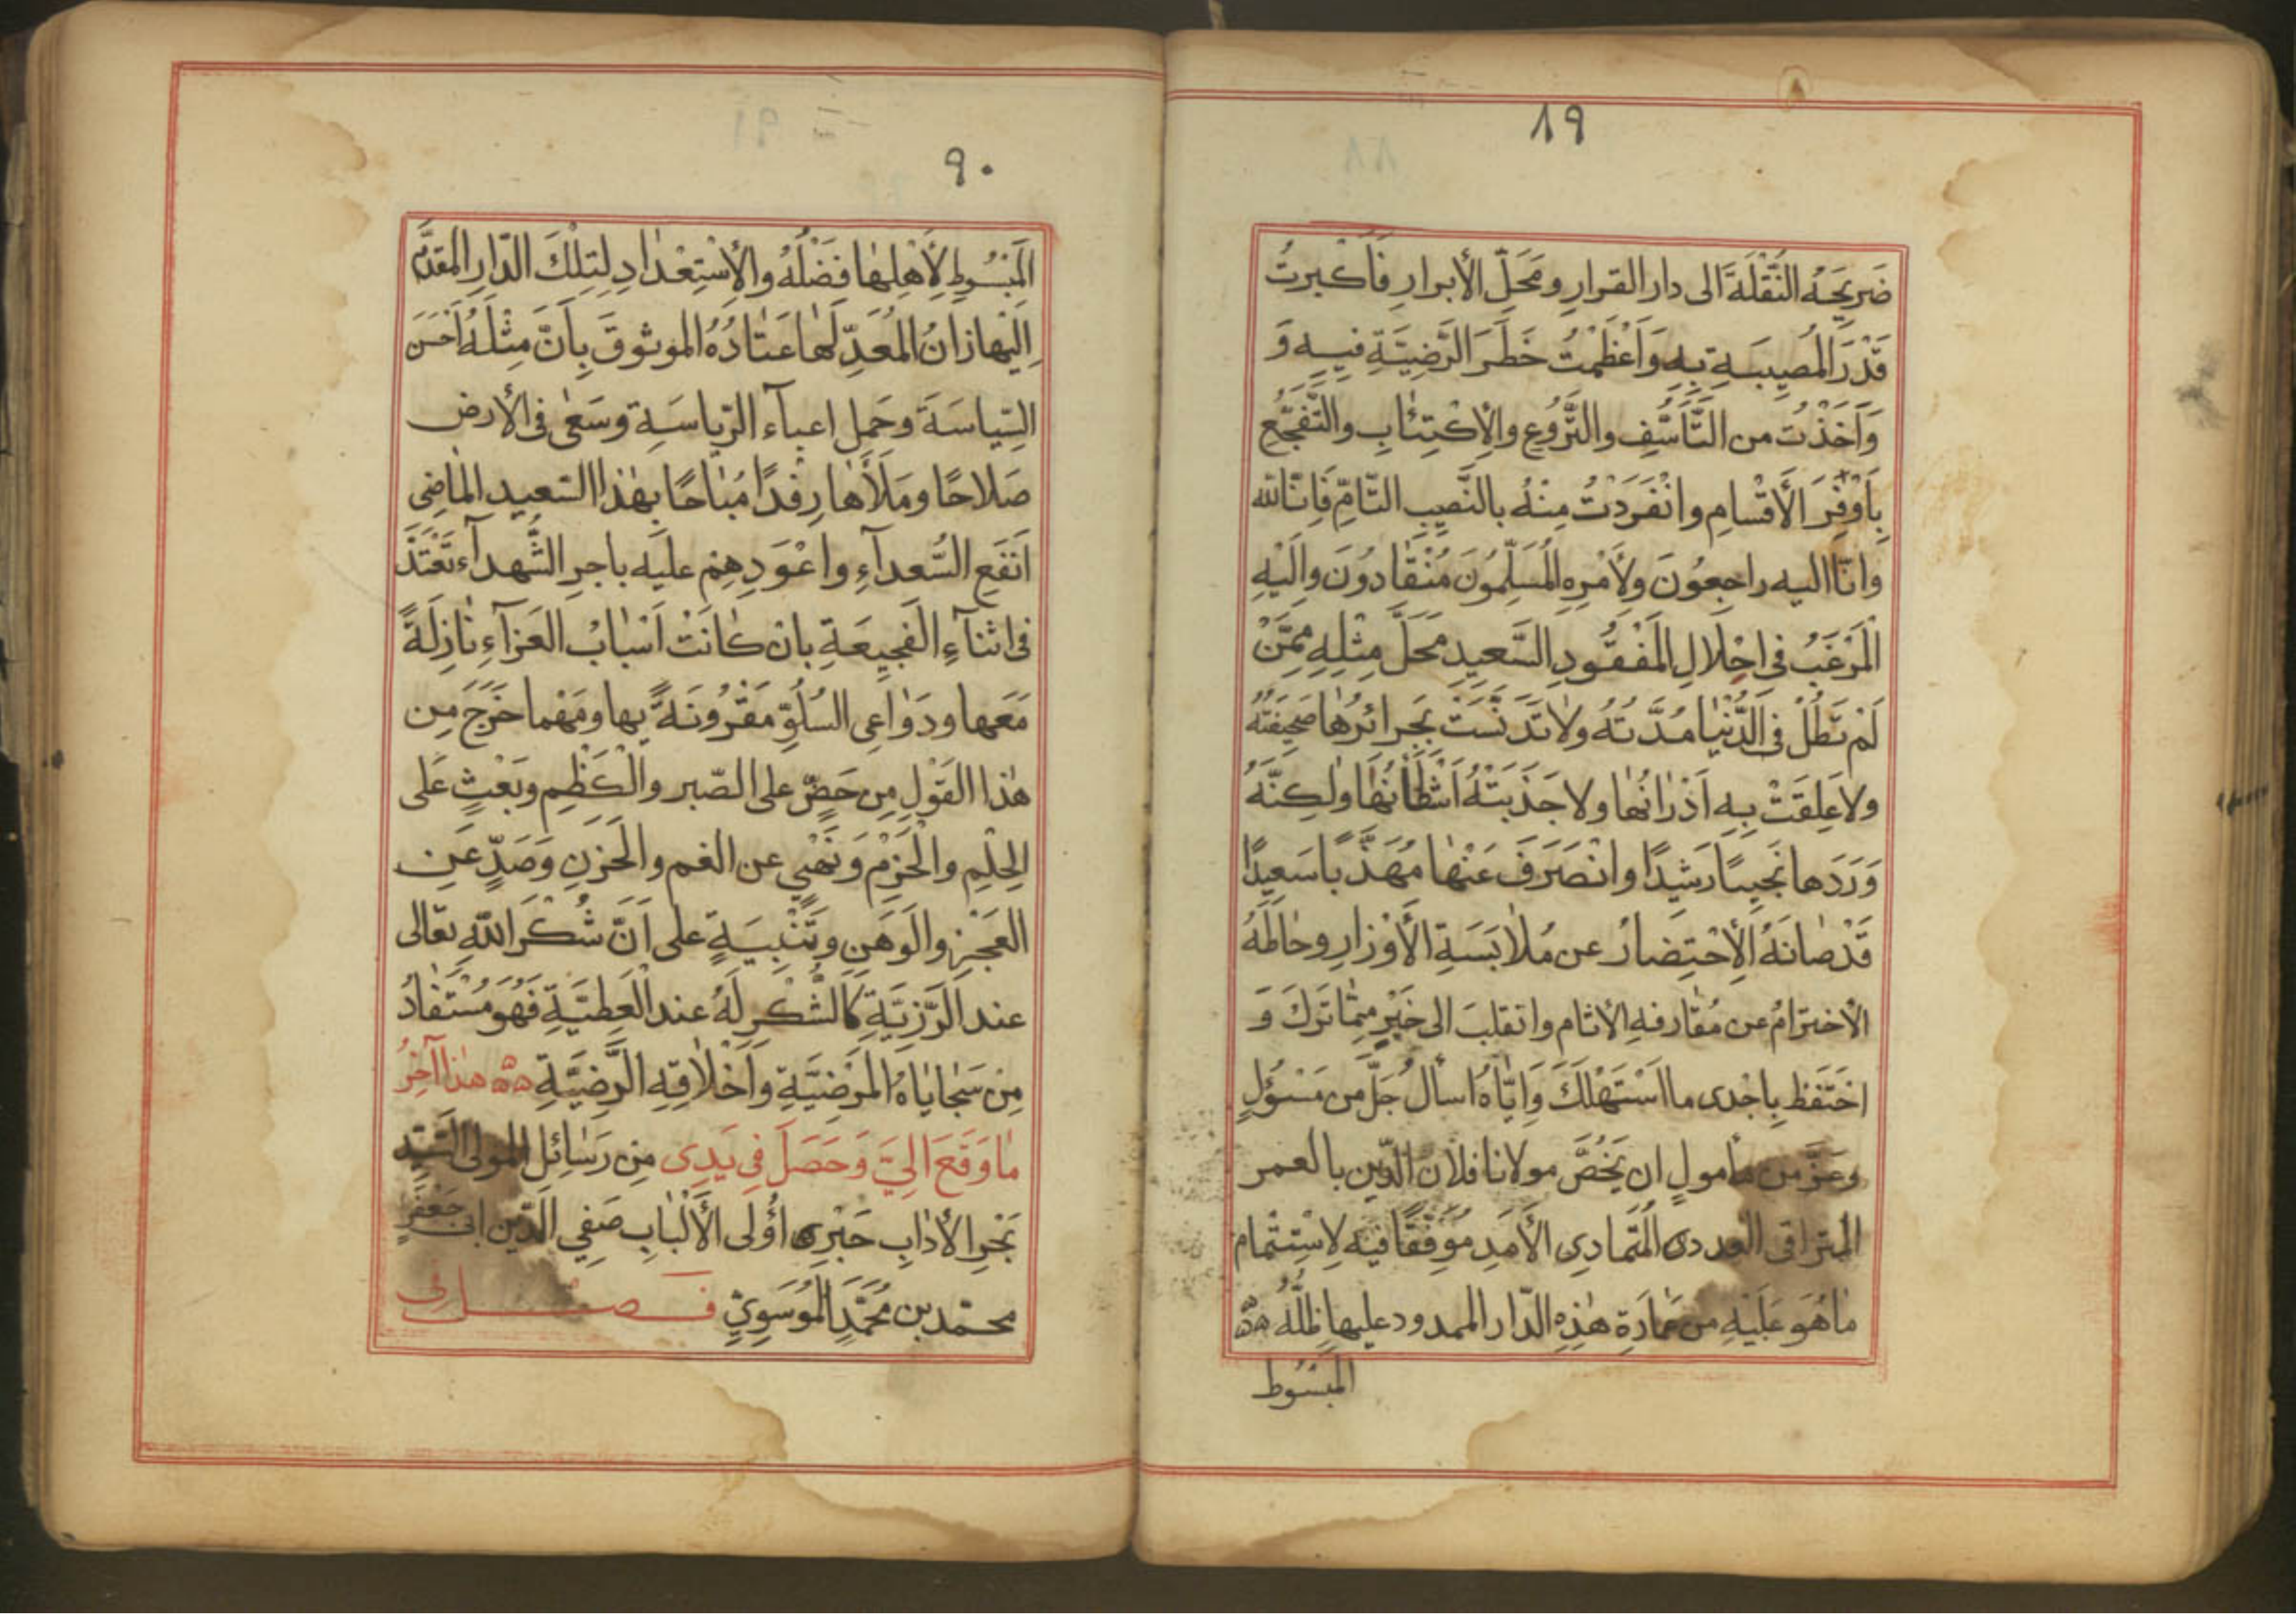 ٨٩
ضَرِيحَهُ النُّقْلَةَ الى دار القرارِ ومَحَلِّ الأبرارِ فَأكْبرتُ
قَدْرَ المُصِيبَةِ بِهِ وَأعْظَمْتُ خَطَرَ الرَّضِيَّةِ فيهِ وَ
وَأَخَذْتُ من التَّأَسُّفِ والتَّرَوُّعِ والإكْتِئَابِ والتَّفَجُّعِ
بِأَوْفَرَ الأَقْسامِ وانْفَرَدْتُ مِنْهُ بالنَّصِيبِ التَّامِّ فَإِنَّا لله
وانّا اليه راجِعُونَ ولأَمْرِهِ المُسَلِّمُونَ مُنْقَادُونَ وإلَيْهِ
المَرْغَبُ فى احِلالِ المَفْقُودِ السَّعِيدِ مَحَلَّ مِثْلِهِ مِمَّنْ
لَمْ تَطُلْ فى الدُّنْيَا مُدَّتُهُ ولاَ تَدَنَّسَتْ بِجَرائرُهَا صَحِيفَتُهُ
ولا عَلِقَتْ بِهِ اَدْرَانُهَا ولا جَذَبَتْهُ اَشْطَانُهَا ولكِنَّهُ
وَرَدَها نَجِيبًا رَشِيدًا وانْصَرَفَ عَنْهَا مُهَذَّبًا سَعِيدًا
قَدْ صَانَهُ الأِحْتِضارُ عن مُلاَبَسَةِ الأَوْزارِ وحَاطَهُ
الأخترامُ عن مُقَارفهِ الأثام وانقلبَ الى خَيْرٍ مِمَّا تَرَكَ وَ
اختَفَظ بِاجْدى ما اسْتَهْلَكَ وَإِيَّاهُ اسألُ جَلَّ من مَسْؤُلٍ
وعَزَّ من مأمولٍ ان يَخُصَّ مولانا فلان الدّين بالعمر
المتراقى العددى المُتَمادِى الأَمَدِ مُوَفَّقًا فيه لاِسْتِثْمام
مَاهُوَ عَلَيْهِ من عمَارَة هٰذِهِ الدّار الممدود عليها ظلُّهُ
المبسُوط
٩٠
المَبْسُوطِ لِأَهْلِهَا فَضْلُهُ والأِسْتِعْدَادِ لِتِلْكَ الدّارِ المقدَّمِ
اِلَيْهَا زانُ المُعَدِّ لَهَا عَتَادُهُ الموثوقَ بِأَنَّ مِثْلَهُ اَحْسَنَ
السِّيَاسَةَ وحَمِلَ اعباءَ الرّياسَةِ وسَعٰى فى الأرض
صَلاحًا ومَلَأهَا رِفْدًا مُبَاحًا بِهٰذا السّعِيدِ المَاضِى
اَنْفَعِ السُّعداءِ واعْوَدِهِمْ عليه باجرِ الشُّهداء نَعْتَدُّ
فى اثناءِ الفَجِيعَةِ بانْ كَانَتْ اَسْبَابْ العَزاءِ نازِلَةً
مَعَها ودَوَاعِى السُلُوِّ مَقْرُونَةً بِهَا ومَهْمَا خَرَجَ مِن
هٰذا القَوْلِ مِن حَضٍّ على الصّبر والْكَظْمِ وبَعْثٍ عَلى
الحِلْمِ والْحَزْمِ وَنَهْيٍ عن الغم والْحَزنِ وَصَدٍّ عَنِ
العَجْزِ والوَهَنِ وتَنْبِيَةٍ على اَنَّ شُكْرَ اللهِ تعالى
عند الرَّزِيَّةِ كالشُّكْرِ لَهُ عند العَطِيَّةِ فَهُوَ مُسْتَفَادُ
مِنْ سَجَايَاهُ المَرْضِيَّةِ واَخْلاَقِهِ الرَّضِيَّةِ هٰذا آخِرُ
مَا وَقَعَ الِيَّ وَحَصَلَ فى يَدِى مِن رَسَائِلِ المولى السَّيّد
بَحْرِ الأَدَابِ حَبْرِى اؤُلى الأَلْبَابِ صَفِي الدّين ابى جَعْفَرٍ
محمّد بن مُحَمَّدِ المُوسَوِيِّ فصل فى